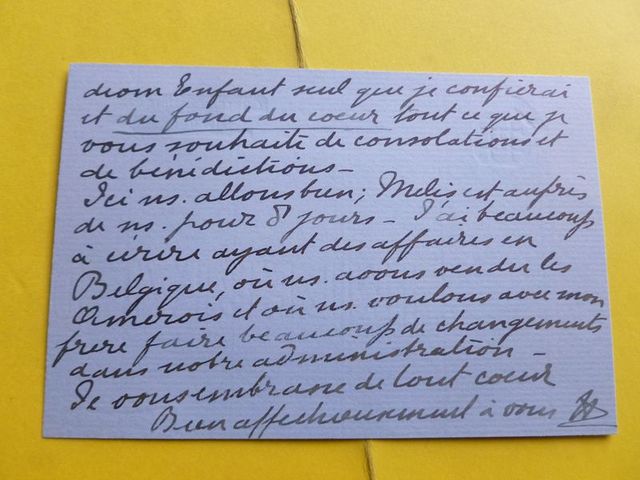 divin Enfant seul que je confierai
et du fond du coeur tout ce que je
vous souhaite de consolations et
de bénédictions -
Ici ns. allons bien; Melis est auprès
de ns. pour 8 jours - J'ai beaucoup
à écrire ayant des affaires en
Belgique, où ns. avons vendu les
Amerois et où ns. voulons avec mon
frere faire beaucoup de changements
dans notre administration -
Je vous embrasse de tout coeur
Bien affectueusement à vous